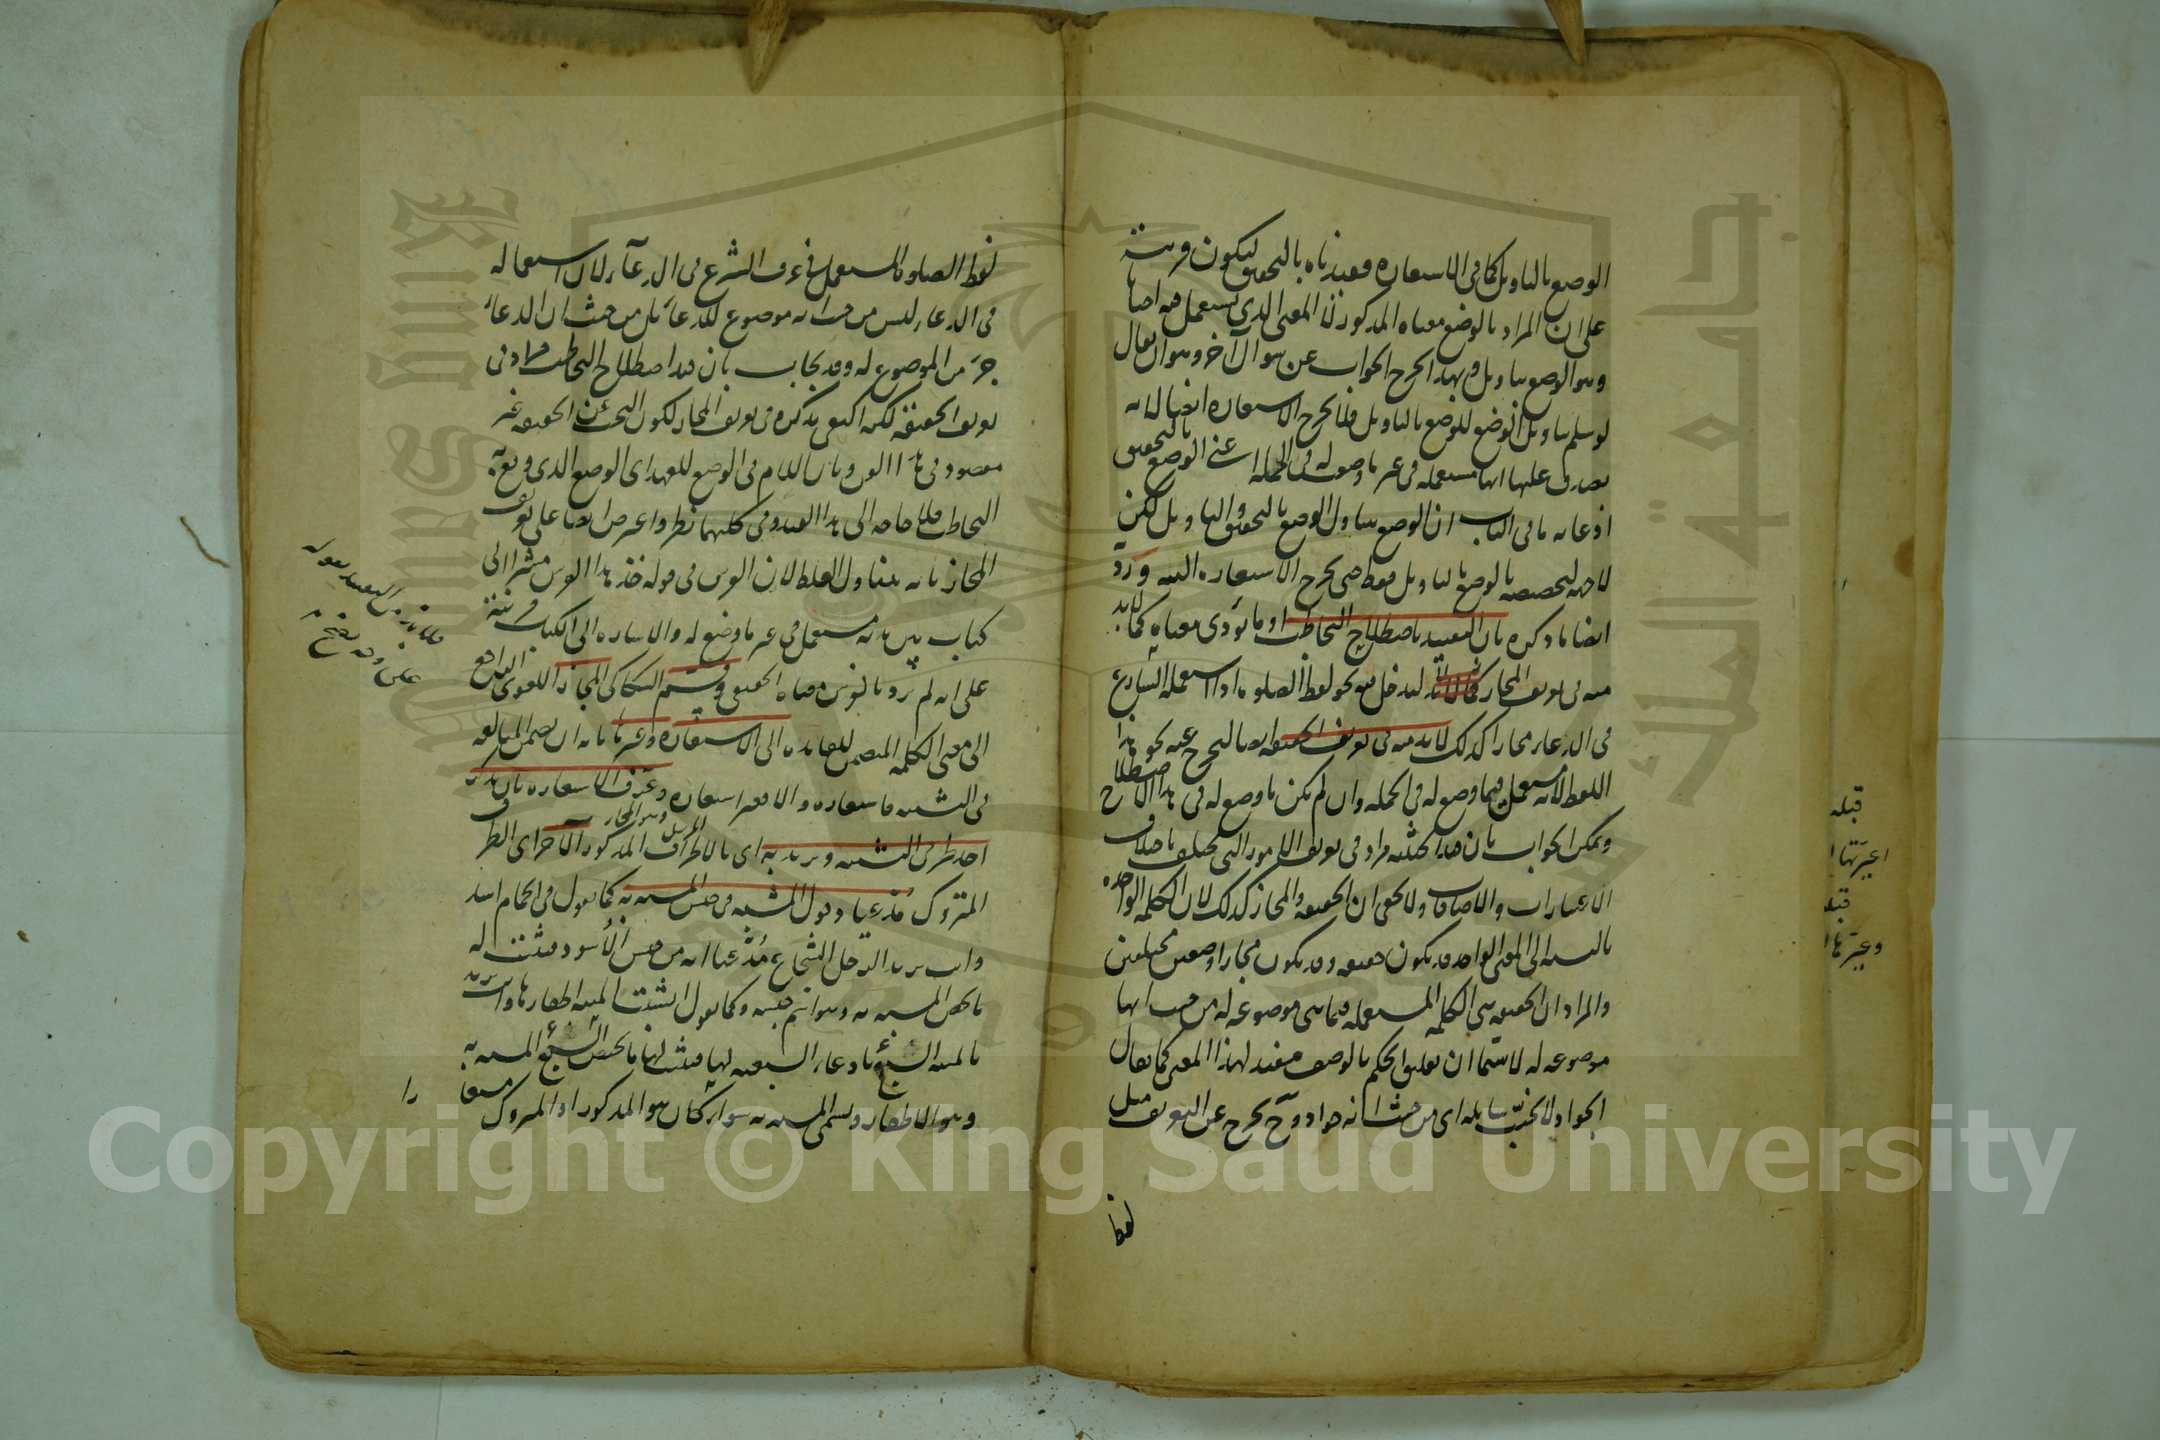 الوضع بالتاويل كما فى الاستعارة فقيدناه بالتحقيق ليكون قرينة
على ان المراد بالوضع معناه المذكور لا المعنى الذى يستعمل فيه احيانا
وهو الوضع بتاويل وبهذا يخرج الجواب عن سوال آخر وهو ان يقال
لو سلم تناول الوضع للوضع بالتاويل فلا تخرج الاستعارة ايضا لانه
يصدق عليها انها مستعملة فى غير ما وضعت له فى الجملة اعنى الوضع بالتحقيق
اذ غاية ما فى الباب ان الوضع يتناول الوضع بالتحقيق والتاويل لكن
لا جهة لتخصيصه بالوضع بالتاويل فقط حتى تخرج الاستعارة البتة ورد
ايضا ما ذكره بان التقييد باصطلاح التخاطب او ما يؤدى معناه كما لا بد
منه فى تعريف المجاز ليدخل فيه نحو لفظ الصلوة اذا استعمله الشارع
فى الدعاء مجازا كذلك لا بد منه فى تعريف الحقيقة ايضا ليخرج عنه نحو هذا
اللفظ لانه مستعمل فيما وضع له فى الجملة وان لم يكن ما وضع له فى هذا الاصطلاح
ويمكن الجواب بان قيد الحيثية مراد فى تعريف الامور التى تختلف باختلاف
الاعتبارات والاضافات ولا يخفى ان الحقيقة والمجاز كذلك لان الكلمة الواحدة
بالنسبة الى المعنى الواحد قد يكون حقيقة وقد يكون مجازا بوضعين مختلفين
والمراد ان الحقيقة هى الكلمة المستعملة فيما هى موضوعة له من حيث انها
موضوعة له لا سيما ان تعليق الحكم بالوصف مفيد لهذا المعنى كما يقال
الجواد لا يخيب سايله اى من حيث انه جواد وح يخرج عن التعريف مثل
لفظ
لفظ الصلوة المستعمل فى عرف الشرع فى الدعاء لان استعماله
فى الدعاء ليس من حيث انه موضوع للدعاء بل من حيث ان الدعاء
جزء من الموضوع له وقد يجاب بان قيد اصطلاح التخاطب مراد فى
تعريف الحقيقة لكنه اكتفى بذكره فى تعريف المجاز لكون البحث عن الحقيقة غير
مقصود فى هذا الفن وبان اللام فى الوضع للعهد اى الوضع الذى وقع به
التخاطب فلا حاجة الى هذا القيد وفى كليهما نظر واعترض ايضا على تعريف
المجاز بانه يتناول الغلط لان الفرس فى قوله خذ هذا الفرس مشيرا الى
كتاب بين يديه مستعمل فى غير ما وضع له والاشارة الى الكتاب قرينة
على انه لم يرد بالفرس معناه الحقيقى وقسم السكاكى المجاز اللغوى الراجع
الى معنى الكلمة المتضمن للفايدة الى الاستعارة وغيرها بانه ان تضمن المبالغة
فى التشبيه فاستعارة والا فغير استعارة وعرف الاستعارة بان يذكر
احد طرفى التشبيه ويريد به اى بالطرف المذكور الآخر اى الطرف
المتروك مدعيا دخول المشبه فى جنس المشبه به كما تقول فى الحمام اسد
وانت تريد الرجل الشجاع مدعيا انه من جنس الاسود فتثبت له
ما يخص المشبه به وهو اسم جنسه وكما تقول انشبت المنية اظفارها وانت تريد
بالمنية السبع بادعاء السبعية لها فتثبت لها ما يخص السبع المشبه به
وهو الاظفار ويسمى المشبه به سواء كان هو المذكور او المتروك مستعارا